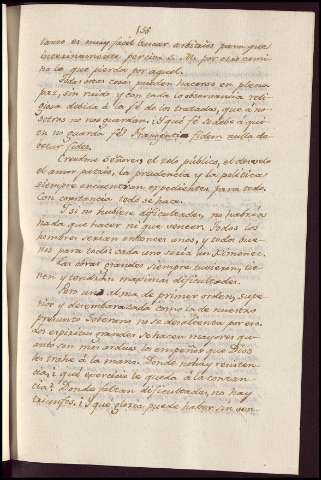 156
tanto es muy facil buscar arbitrios para que
interinamente perciba S. M. por otro cami-
no lo que pierda por aquel.
Todas estas cosas pueden hacerse en plena
paz, sin ruido y con toda la observancia reli-
giosa debida à la fé de los tratados, que à no-
sotros no nos guardan. I què fé se debe a qui-
en no guarda fé? Frangenti fidem nulla de-
betur fides.
Creedme Señores el zelo público, el deseo de
el amor patrio, la prudencia y la politica
siempre encuentran expedientes para todo.
Con constancia todo se hace.
I si no hubiese dificultades, no habria
nada que hacer ni que vencer. Todos los
hombres serian entonces unos, y todos bue-
nos para todo: cada uno seria un Ximenez.
Las obras grandes siempre tuvieron, tie-
nen y tendrán maximas dificultades.
Pero una alma de primer orden, supe-
rior y desembarazada como la de nuestro
presunto Soberano no se desalienta por eso.
Los espiritus grandes se hacen mayores qu-
anto son mas arduos los empeños que Dios
les trahe à la mano. Donde no hay resisten-
cia, ¿ què exercicio le queda à la constan-
cia? Donde faltan dificultades, no hay
triunfos. ¿ I què gloria puede haber sin ven-